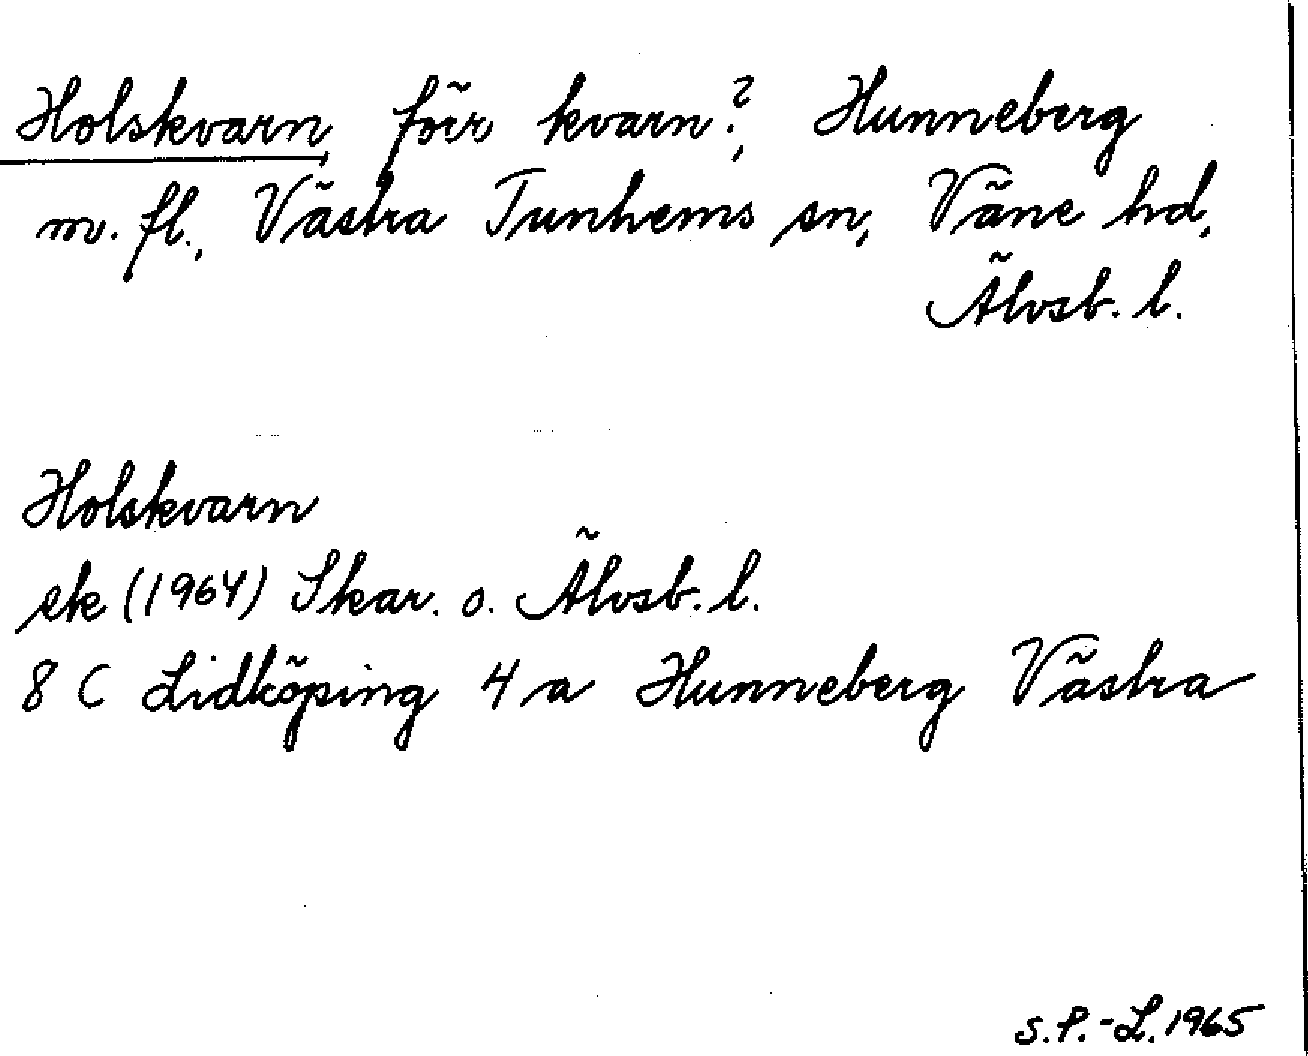 Holskvarn, förr kvarn?, Hunneberg
m. fl., Västra Tunhems sn, Väne hd,
Älvsb. l.
Holskvarn
ek (1964) Skar. o. Älvsb. l.
8 C Lidköping 4 a Hunneberg Västra
S.P.-L. 1965